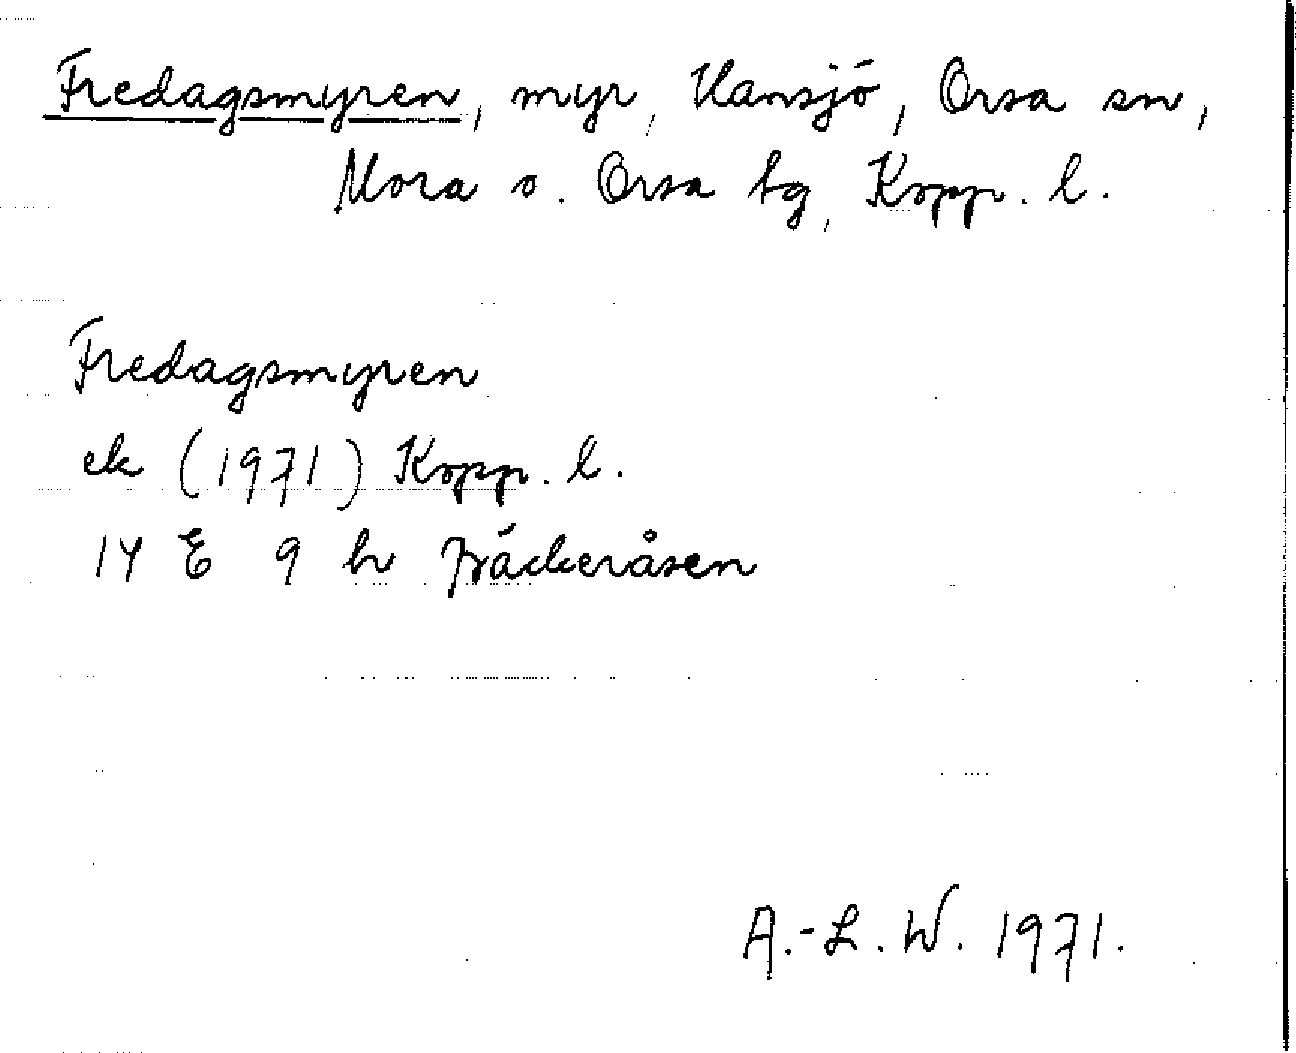 Fredagsmyren, myr, Hansjö, Orsa sn,
Mora o. Orsa tg, Kopp. l.
Fredagsmyren
ek (1971) Kopp. l.
14 E 9 h Fräckeråsen
A.-L. W. 1971.